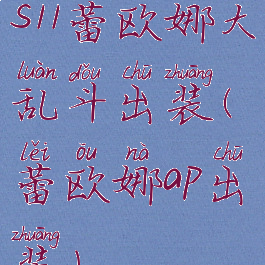 S11蕾欧娜大
luàn dǒu chū zhuāng
乱斗出装(
lěi ōu nà chū
蕾欧娜ap出
zhuāng
装)